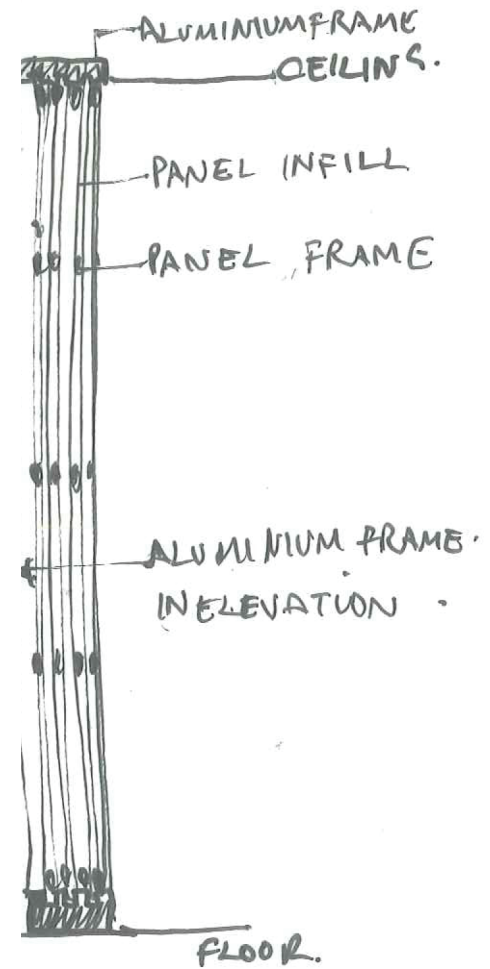 ALUMINIUM FRAME
CEILING.
PANEL INFILL
PANEL FRAME
ALUMINIUM FRAME.
IN ELEVATION.
FLOOR.